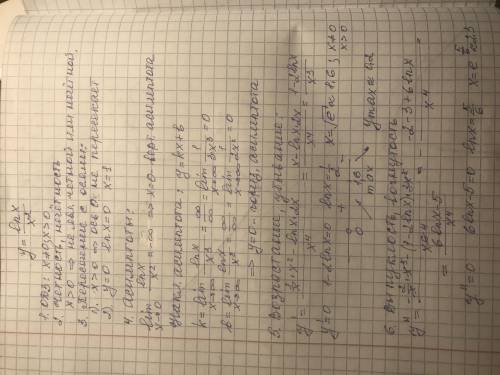 y = lnx/x²
1. ОДЗ: x≠0; x>0
2. Чётность, нечётность
x>0 ⇒ не явл. чётной или нечётной.
3. Пересечение с осями:
1) x>0 ⇒ ось 0 не пересекает
2) y=0 lnx=0 x=1
4. Асимптоты:
lim x→0 lnx/x² = -∞ ⇒ x=0 верт. асимптота
Накл. асимптота: y=kx+b
k = lim x→∞ lnx/x³ = ∞/∞ = lim x→∞ 1/3x³ = 0
b = lim x→∞ lnx/x² = ∞/∞ = lim x→∞ 1/2x² = 0
⇒ y=0 - гориз. асимптота
5. Возрастание, убывание:
y' = (1/x·x² - lnx·2x)/x⁴ = (x - lnx·2x)/x⁴ = (1-2lnx)/x³
y'=0 1-2lnx=0 lnx=1/2 x=√e≈1,6; x≠0
x>0
+ -
0 1,6
max
ymax≈0,2
6. Выпуклость, вогнутость
y'' = (-2/x·x³-(1-2lnx)·3x²)/x⁶ = (-2-3+6lnx)/x⁴ =
= (6lnx-5)/x⁴
y''=0 6lnx-5=0 lnx=5/6 x=e^(5/6)≈2,3